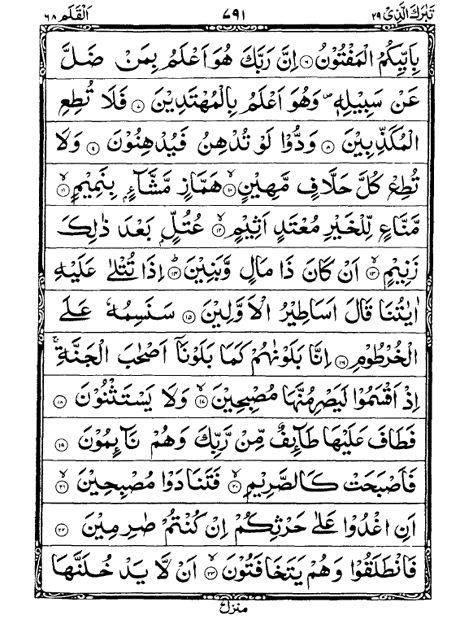 تَبٰرَكَ الَّذِیْ ٢٩ ٧٩١ اَلْقَلَم ٦٨
بِاَیِّىكُمُ الْمَفْتُوْنُ ٦ اِنَّ رَبَّكَ هُوَ اَعْلَمُ بِمَنْ ضَلَّ
عَنْ سَبِیْلِهٖ ۪ وَهُوَ اَعْلَمُ بِالْمُهْتَدِیْنَ ٧ فَلَا تُطِعِ
الْمُكَذِّبِیْنَ ٨ وَدُّوْا لَوْ تُدْهِنُ فَیُدْهِنُوْنَ ٩ وَلَا
تُطِعْ كُلَّ حَلَّافٍ مَّهِیْنٍ ١٠ هَمَّازٍ مَّشَّآءٍۭ بِنَمِیْمٍ ١١
مَّنَّاعٍ لِّلْخَیْرِ مُعْتَدٍ اَثِیْمٍ ١٢ عُتُلٍّۭ بَعْدَ ذٰلِكَ
زَنِیْمٍ ١٣ اَنْ كَانَ ذَا مَالٍ وَّبَنِیْنَ ١٤ اِذَا تُتْلٰی عَلَیْهِ
اٰیٰتُنَا قَالَ اَسَاطِیْرُ الْاَوَّلِیْنَ ١٥ سَنَسِمُهٗ عَلَی
الْخُرْطُوْمِ ١٦ اِنَّا بَلَوْنٰهُمْ كَمَا بَلَوْنَاۤ اَصْحٰبَ الْجَنَّةِ ۚ
اِذْ اَقْسَمُوْا لَیَصْرِمُنَّهَا مُصْبِحِیْنَ ١٧ وَلَا یَسْتَثْنُوْنَ ١٨
فَطَافَ عَلَیْهَا طَآئِفٌ مِّنْ رَّبِّكَ وَهُمْ نَآئِمُوْنَ ١٩
فَاَصْبَحَتْ كَالصَّرِیْمِ ٢٠ فَتَنَادَوْا مُصْبِحِیْنَ ٢١
اَنِ اغْدُوْا عَلٰی حَرْثِكُمْ اِنْ كُنْتُمْ صٰرِمِیْنَ ٢٢
فَانْطَلَقُوْا وَهُمْ یَتَخَافَتُوْنَ ٢٣ اَنْ لَّا یَدْخُلَنَّهَا
منزل ٧